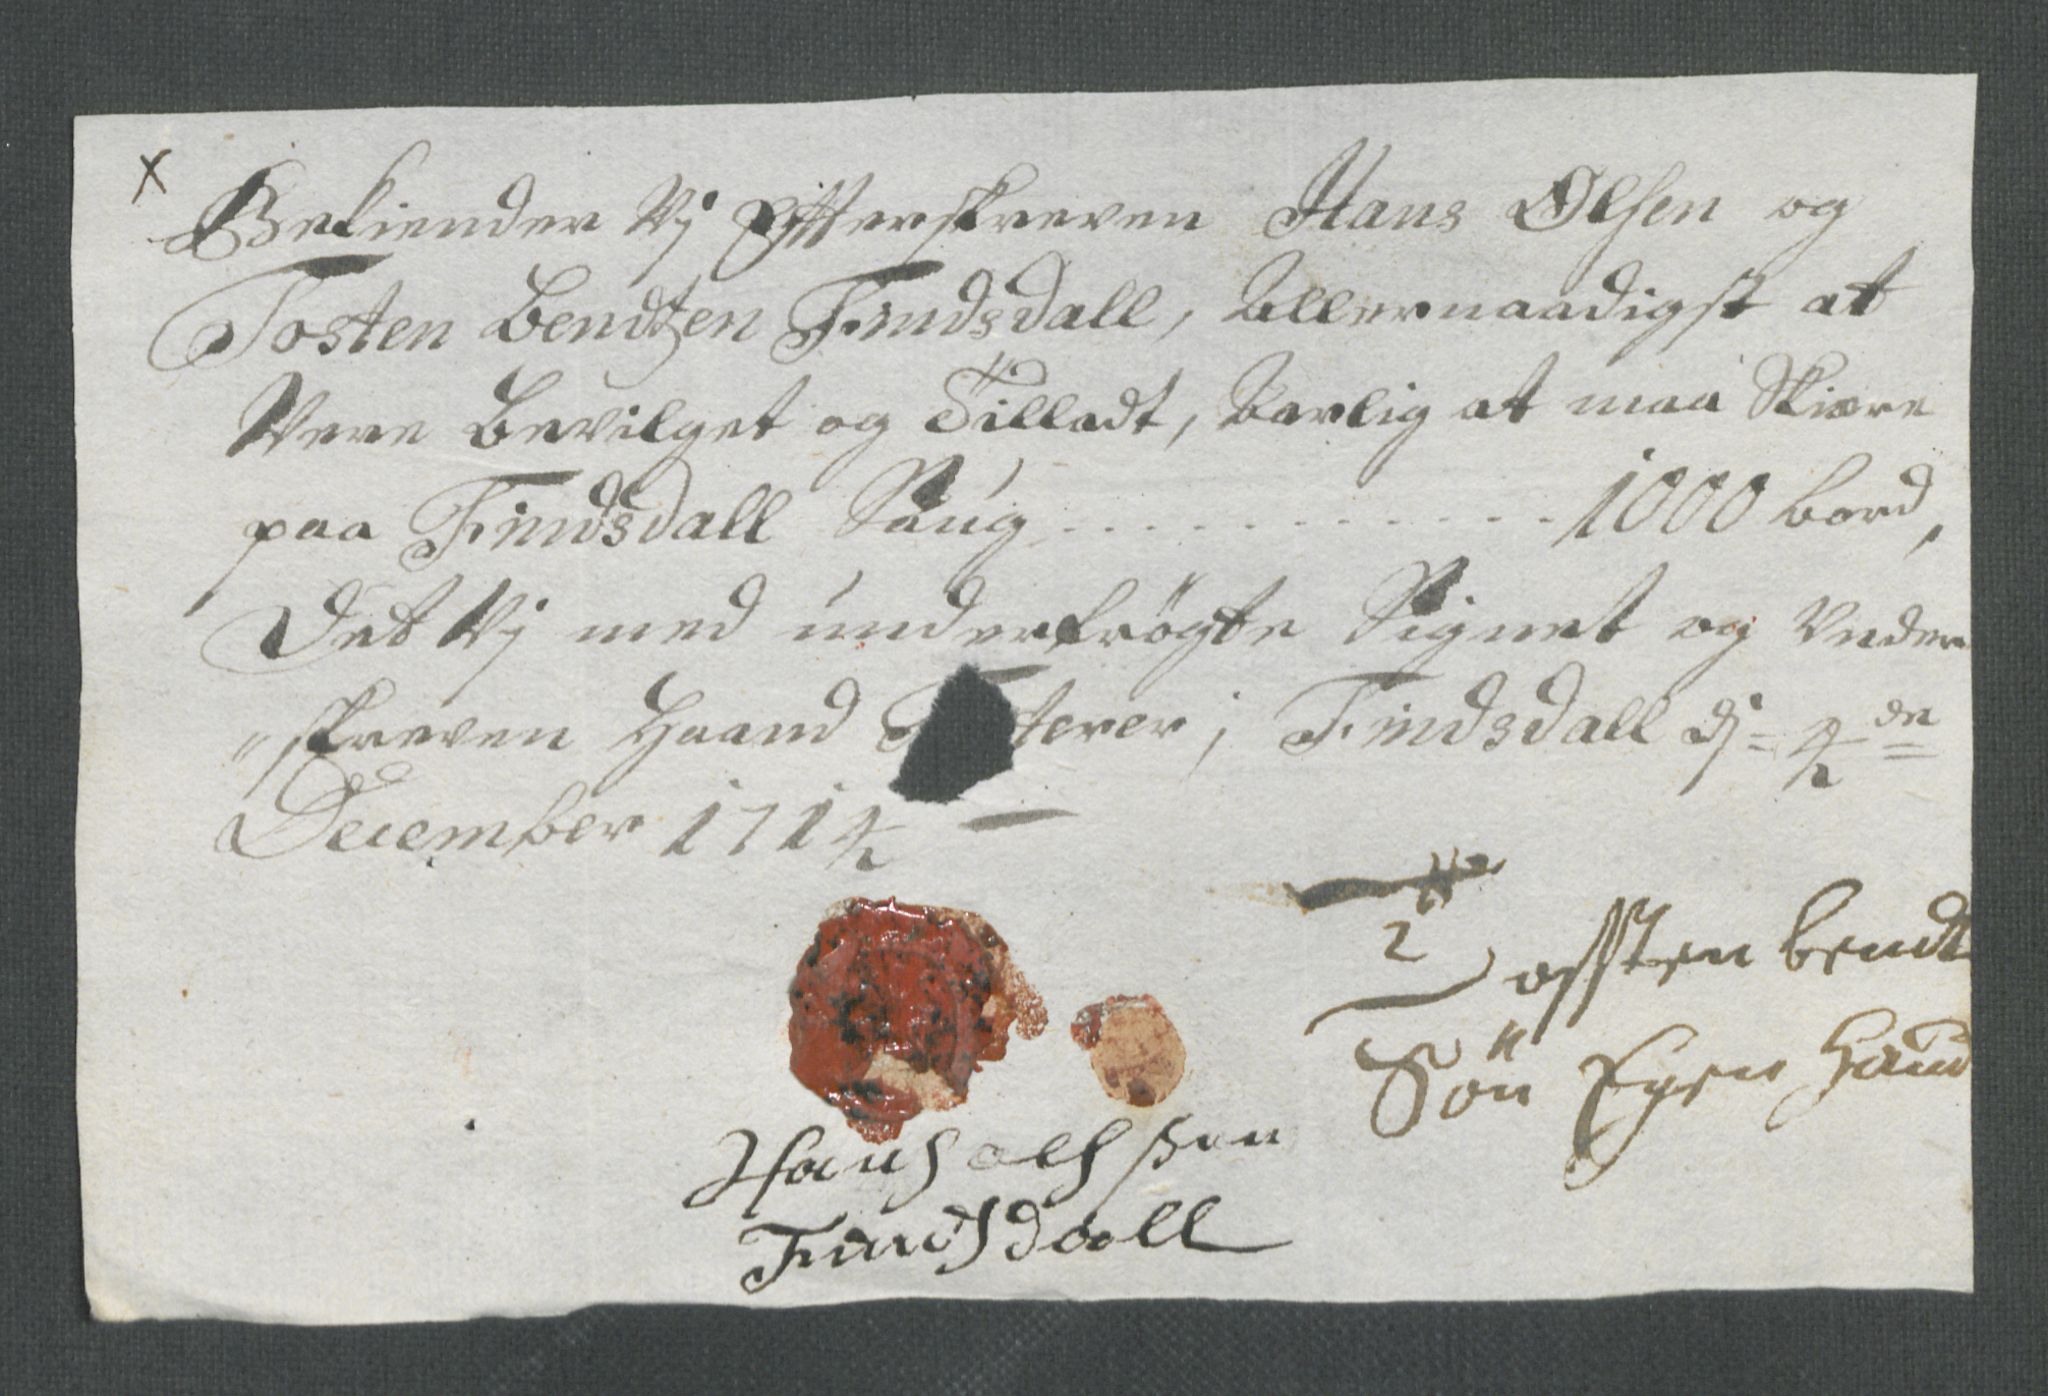 x
Bekiender Vj Efterskreven Hans Olsen og
Tosten Bendtzen Findsdall, Allernaadigst at
Were Bevilget og Tilladt, Aarlig at maa Skiære
paa Findsdall Saug - - - - - - - - - - - 1000 bord,
Det Vj med undertrögte Signet og Under
"skreven Haand terer, Findsdall dj = 4 de =
December 1714
2
Tossten bendt
Sön Egen Haand
Hans olsen
Findsdall